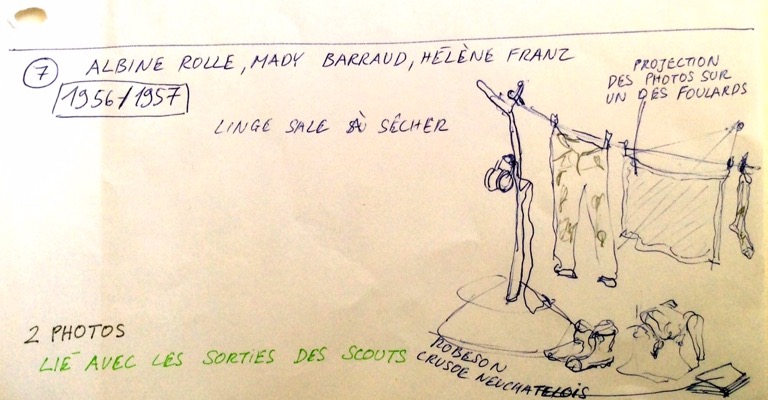 7 ALBINE ROLLE, MADY BARRAUD, HÉLÈNE FRANZ
1956/1957
LINGE SALE À SÊCHER
PROJECTION
DES PHOTOS SUR
UN DES FOULARDS
2 PHOTOS
LIÉ AVEC LES SORTIES DES SCOUTS
ROBESON
CRUSOE NEUCHATELOIS